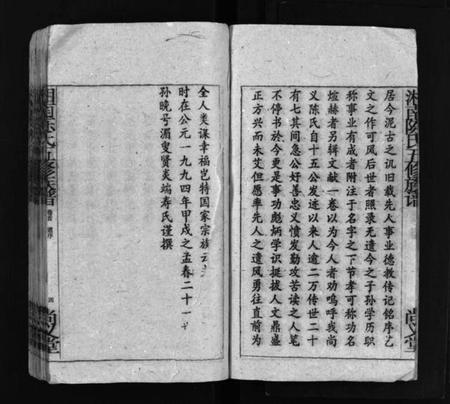 湘南陈氏五修族谱
尚义堂
居今泥古之讥旧载先人事业德教传记铭序艺
文之作可风后世者照录无遗今之子孙学历职
称事业有成者附注于名字之下节孝可称功名
煊赫者另辑文献一卷以为今人者劝呜呼我尚
义陈氏自十五公发迹以来人逾二万传世二十
有七其间急公好善忠义愤发勤攻苦读之人笔
不停书于今更是事功彪炳学识挺拔人文鼎盛
正方兴而未艾但愿率先人之遗风勇往直前为
全人类谋幸福岂特国家宗族云
时在公元一九九四年甲戌之孟春二十一
孙晚号湄叟贤炎端寿氏谨撰
湘南陈氏五修族谱
卷首
四
尚义堂